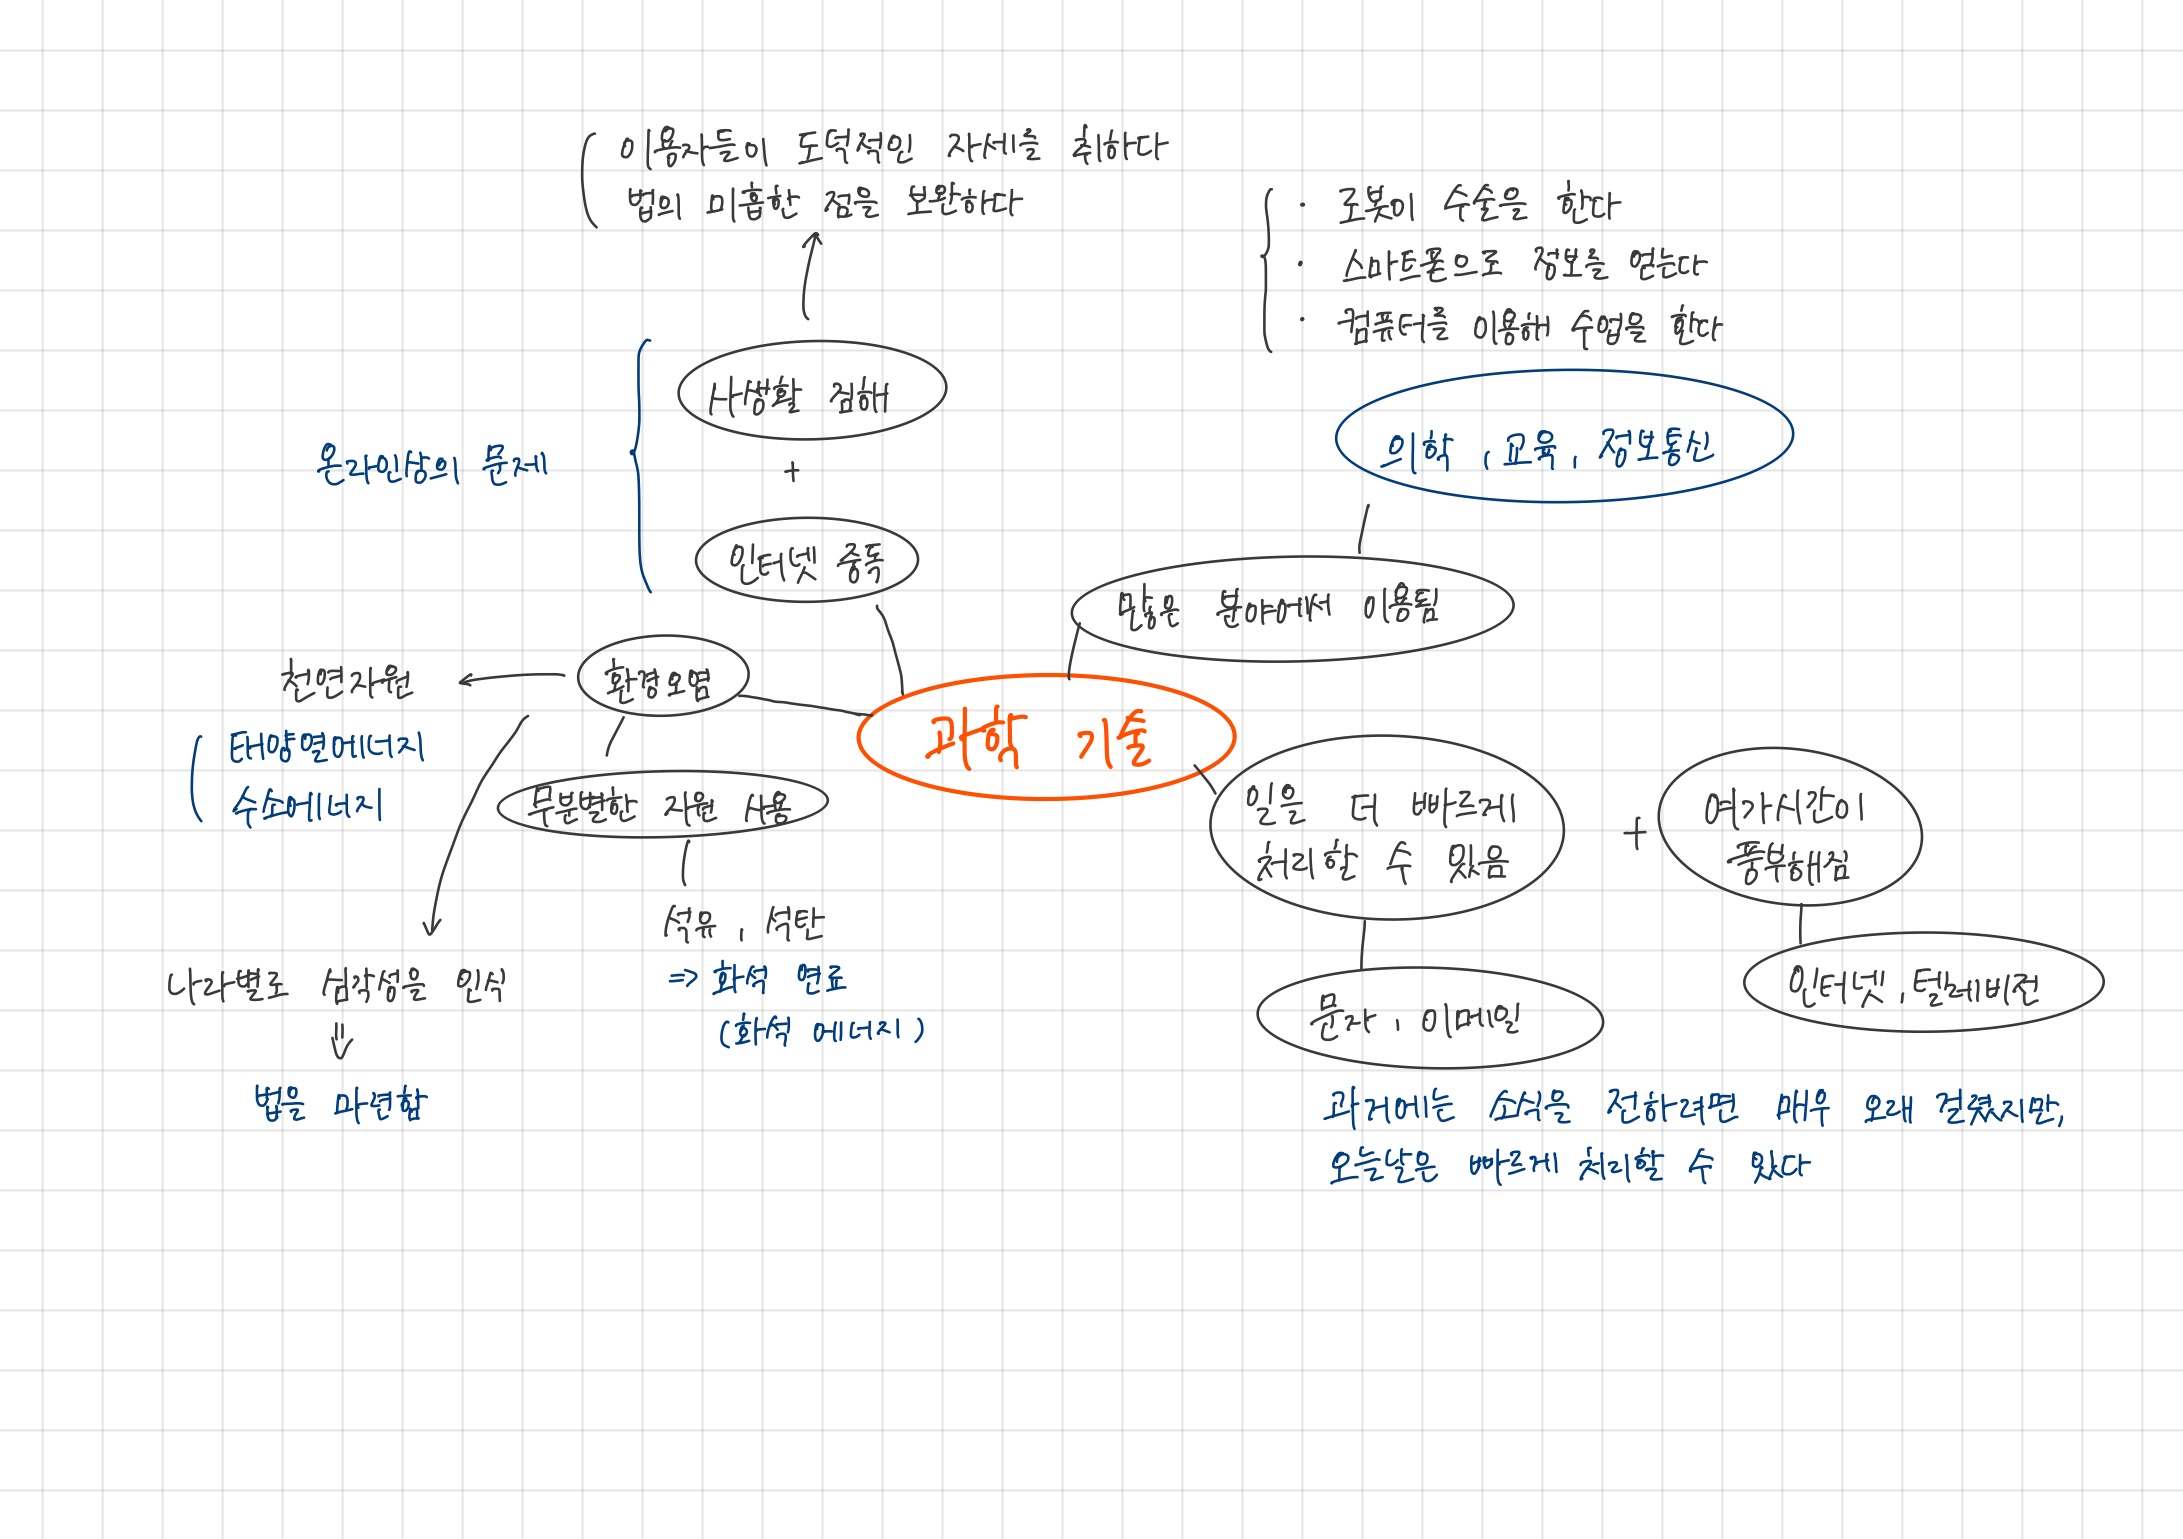 이용자들이 도덕적인 자세를 취하다
법의 미흡한 점을 보완하다
· 로봇이 수술을 한다
· 스마트폰으로 정보를 얻는다
· 컴퓨터를 이용해 수업을 한다
사생활 침해
의학, 교육, 정보통신
온라인상의 문제
+
인터넷 중독
많은 분야에서 이용됨
천연자원
환경오염
과학 기술
태양열에너지
수소에너지
무분별한 자원 사용
일을 더 빠르게
처리할 수 있음
+
여가시간이
풍부해짐
석유, 석탄
⇒ 화석 연료
(화석 에너지)
나라별로 심각성을 인식
⇓
법을 마련함
문자, 이메일
인터넷, 텔레비전
과거에는 소식을 전하려면 매우 오래 걸렸지만,
오늘날은 빠르게 처리할 수 있다